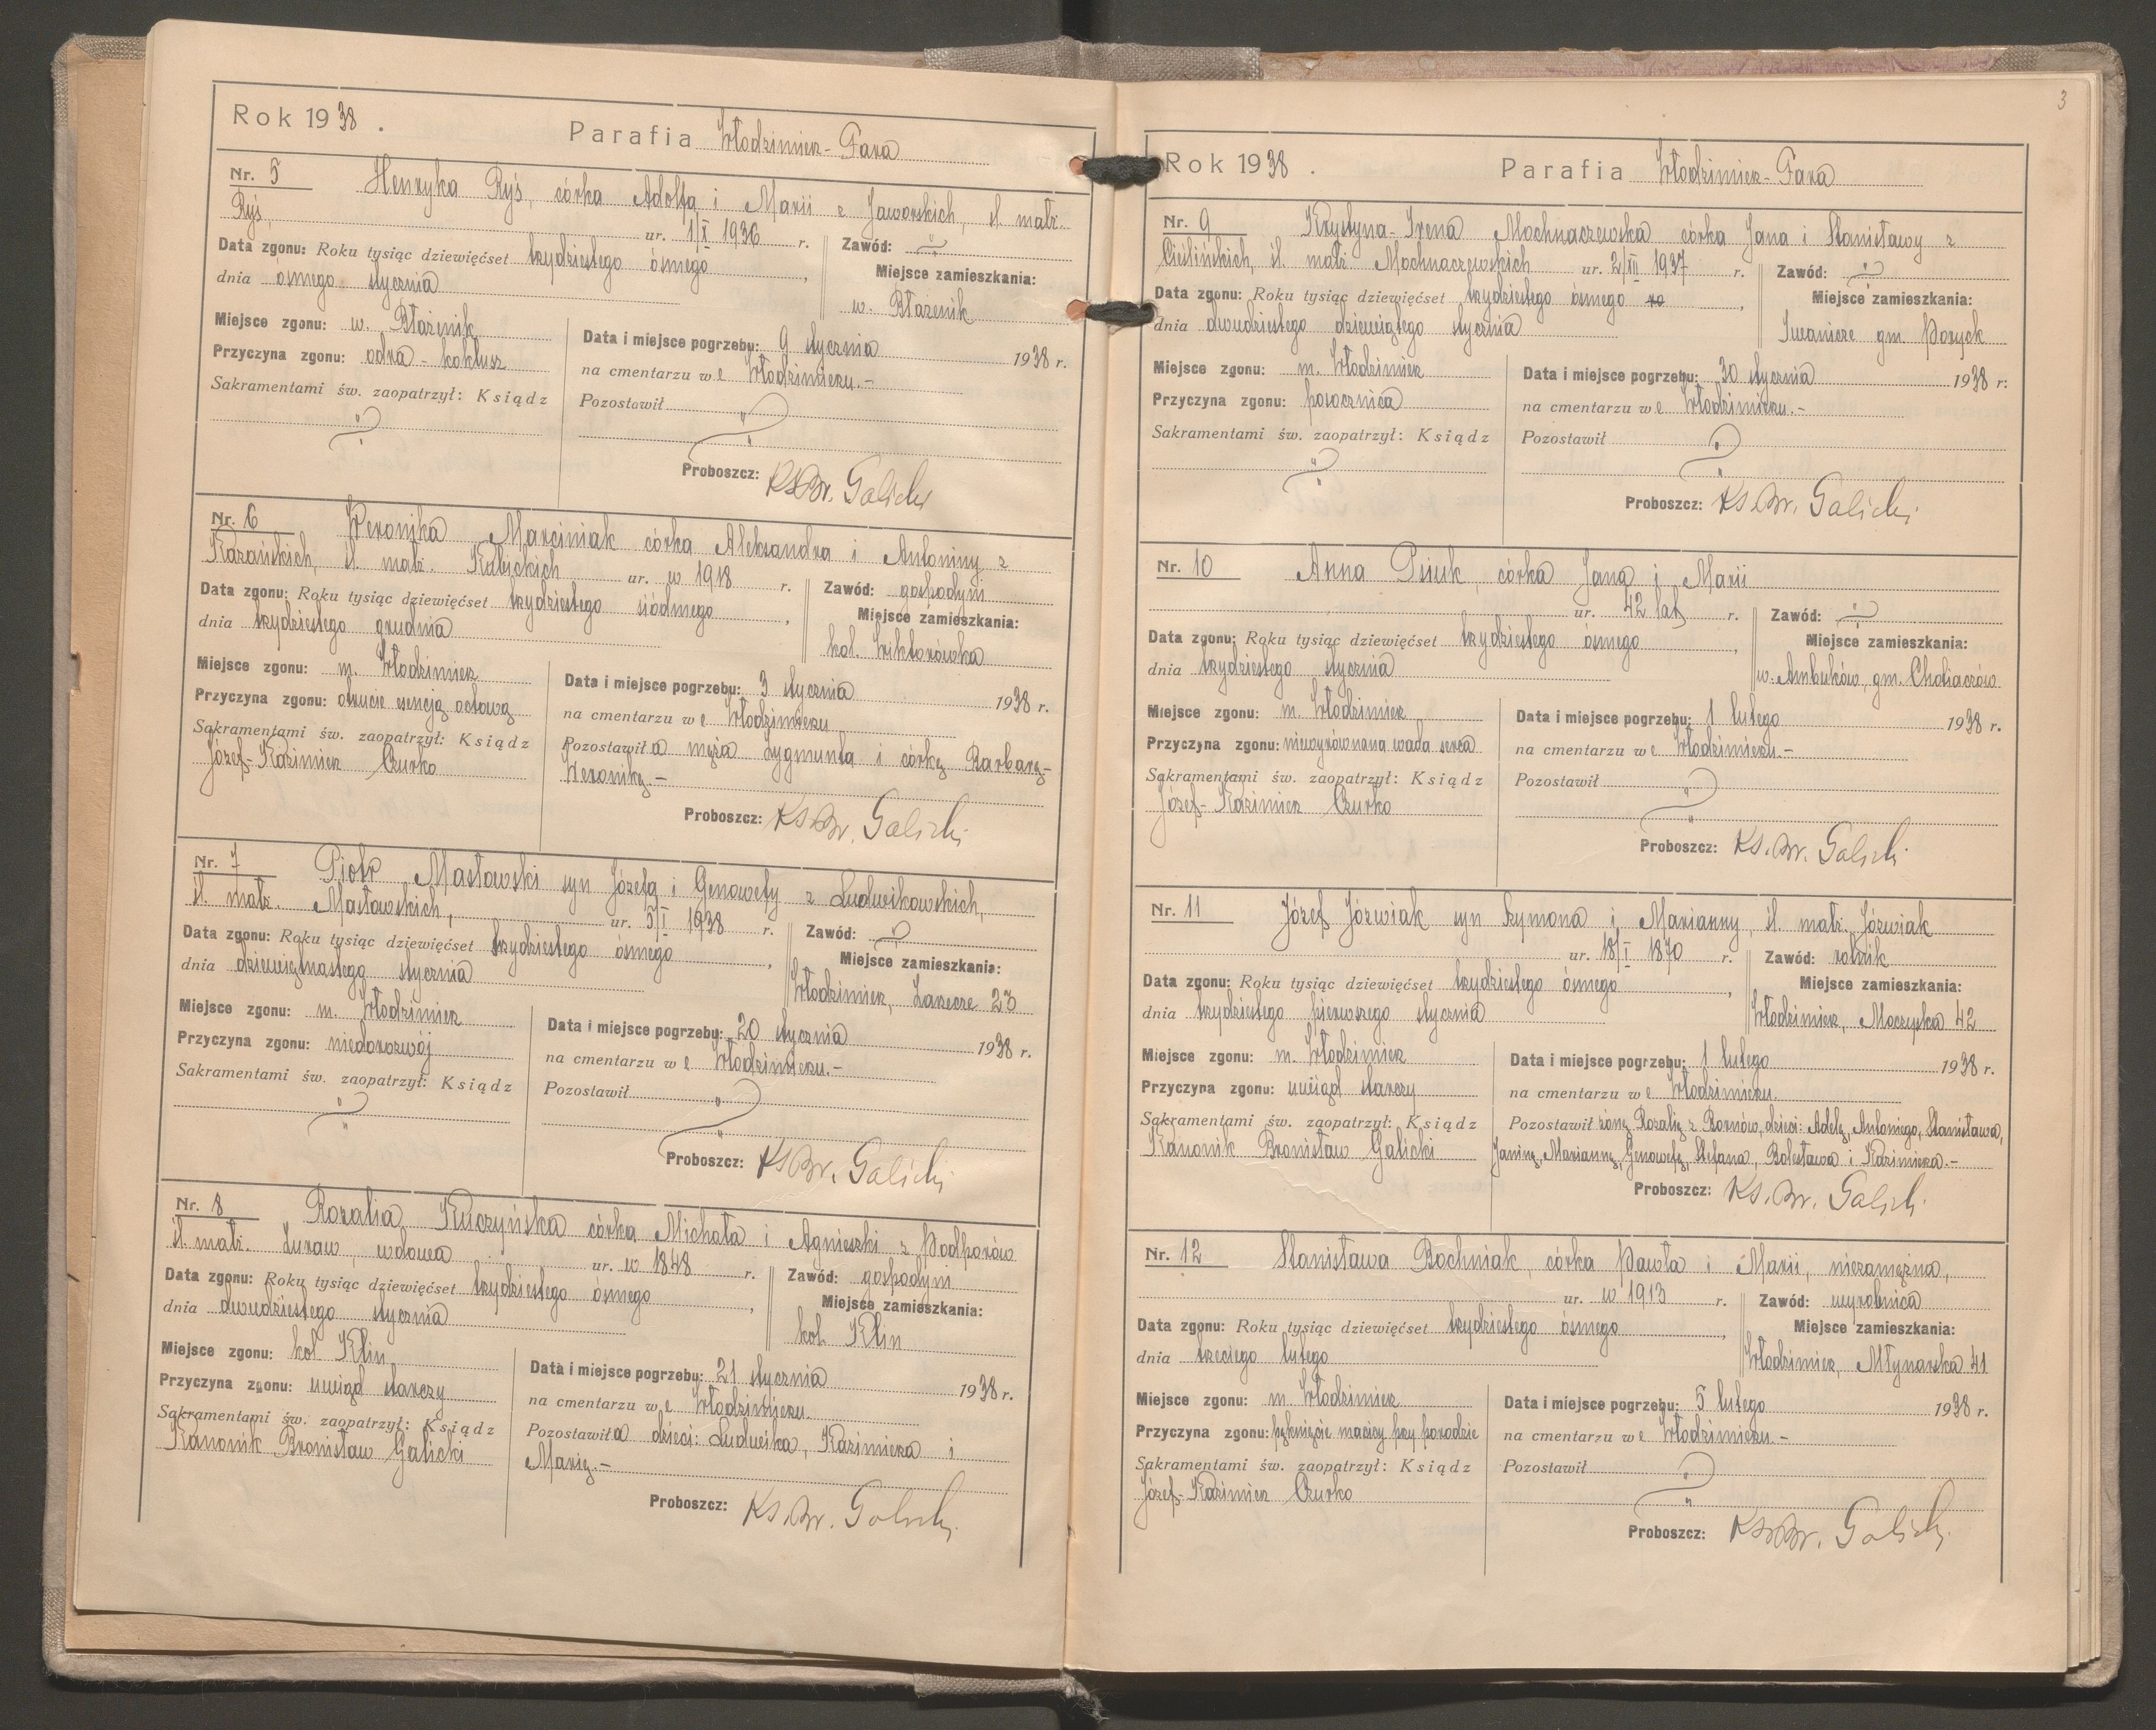 Rok 1938.
Parafia Włodzimierz-Fara
Nr. 5 Henryka Ryś, córka Adolfa i Marii z Jaworskich, śl. małż.
Ryś, ur. 1/X 1936 r.
Zawód:
Data zgonu: Roku tysiąc dziewięćset trzydziestego ósmego,
dnia ósmego stycznia
Miejsce zamieszkania:
w. Błażenik
Miejsce zgonu: w. Błażenik
Przyczyna zgonu: odra - koklusz
Sakramentami św. zaopatrzył: Ksiądz
Data i miejsce pogrzebu: 9 stycznia 1938 r.
na cmentarzu we Włodzimierzu.-
Pozostawił
Proboszcz: Ks. Br. Galicki
Nr. 6 Weronika Marciniak córka Aleksandra i Antoniny z
Kazańskich, śl. małż. Kubickich ur. w 1918 r.
Zawód: gospodyni
Data zgonu: Roku tysiąc dziewięćset trzydziestego siódmego,
dnia trzydziestego grudnia
Miejsce zamieszkania:
kol. Wiktorówka
Miejsce zgonu: m. Włodzimierz
Przyczyna zgonu: otrucie esencją octową
Sakramentami św. zaopatrzył: Ksiądz
Józef-Kazimierz Czurko
Data i miejsce pogrzebu: 3 stycznia 1938 r.
na cmentarzu we Włodzimierzu
Pozostawiła męża Zygmunta i córkę Barbarę-
Weronikę.-
Proboszcz: Ks. Br. Galicki
Nr. 7 Piotr Masłowski syn Józefa i Genowefy z Ludwikowskich,
śl. małż. Masłowskich, ur. 5/I 1938 r.
Zawód:
Data zgonu: Roku tysiąc dziewięćset trzydziestego ósmego,
dnia dziewiętnastego stycznia
Miejsce zamieszkania:
Włodzimierz, Zarzecze 23
Miejsce zgonu: m. Włodzimierz
Przyczyna zgonu: niedorozwój
Sakramentami św. zaopatrzył: Ksiądz
Data i miejsce pogrzebu: 20 stycznia 1938 r.
na cmentarzu we Włodzimierzu.-
Pozostawił
Proboszcz: Ks. Br. Galicki
Nr. 8 Rozalia Kuczyńska córka Michała i Agnieszki z Podporów
śl. małż. Żuraw, wdowa ur. w 1848 r.
Zawód: gospodyni
Data zgonu: Roku tysiąc dziewięćset trzydziestego ósmego,
dnia dwudziestego stycznia
Miejsce zamieszkania:
kol. Klin
Miejsce zgonu: kol. Klin
Przyczyna zgonu: uwiąd starczy
Sakramentami św. zaopatrzył: Ksiądz
Kanonik Bronisław Galicki
Data i miejsce pogrzebu: 21 stycznia 1938 r.
na cmentarzu we Włodzimierzu.
Pozostawiła dzieci: Ludwika, Kazimierza i
Marię.-
Proboszcz: Ks. Br. Galicki
3
Rok 1938.
Parafia Włodzimierz-Fara
Nr. 9 Krystyna-Irena Mochnaczewska córka Jana i Stanisławy z
Cieślińskich, śl. małż. Mochnaczewskich ur. 2/XII 1937 r.
Zawód:
Data zgonu: Roku tysiąc dziewięćset trzydziestego ósmego ro,
dnia dwudziestego dziewiątego stycznia
Miejsce zamieszkania:
Iwanicze gm. Poryck
Miejsce zgonu: m. Włodzimierz
Przyczyna zgonu: posocznica
Sakramentami św. zaopatrzył: Ksiądz
Data i miejsce pogrzebu: 30 stycznia 1938 r.
na cmentarzu we Włodzimierzu.-
Pozostawił
Proboszcz: Ks. Br. Galicki
Nr. 10 Anna Psiuk, córka Jana i Marii
ur. 42 lat r.
Zawód:
Data zgonu: Roku tysiąc dziewięćset trzydziestego ósmego,
dnia trzydziestego stycznia
Miejsce zamieszkania:
w. Ambuków, gm. Chotiaczów
Miejsce zgonu: m. Włodzimierz
Przyczyna zgonu: niewyrównana wada serca
Sakramentami św. zaopatrzył: Ksiądz
Józef-Kazimierz Czurko
Data i miejsce pogrzebu: 1 lutego 1938 r.
na cmentarzu we Włodzimierzu.-
Pozostawił
Proboszcz: Ks. Br. Galicki
Nr. 11 Józef Józwiak syn Szymona i Marianny, śl. małż. Józwiak
ur. 18/I 1870 r.
Zawód: rolnik
Data zgonu: Roku tysiąc dziewięćset trzydziestego ósmego,
dnia trzydziestego pierwszego stycznia
Miejsce zamieszkania:
Włodzimierz, Moczyska 42
Miejsce zgonu: m. Włodzimierz
Przyczyna zgonu: uwiąd starczy
Sakramentami św. zaopatrzył: Ksiądz
Kanonik Bronisław Galicki
Data i miejsce pogrzebu: 1 lutego 1938 r.
na cmentarzu we Włodzimierzu.
Pozostawił żonę Rozalię z Bornów, dzieci: Adelę, Antoniego, Stanisława,
Janinę, Mariannę, Genowefę, Stefana, Bolesława i Kazimierza.-
Proboszcz: Ks. Br. Galicki
Nr. 12 Stanisława Bochniak, córka Pawła i Marii, niezamężna,
ur. w 1913 r.
Zawód: wyrobnica
Data zgonu: Roku tysiąc dziewięćset trzydziestego ósmego,
dnia trzeciego lutego
Miejsce zamieszkania:
Włodzimierz, Młynarska 41
Miejsce zgonu: m. Włodzimierz
Przyczyna zgonu: pęknięcie macicy przy porodzie
Sakramentami św. zaopatrzył: Ksiądz
Józef-Kazimierz Czurko
Data i miejsce pogrzebu: 5 lutego 1938 r.
na cmentarzu we Włodzimierzu.-
Pozostawił
Proboszcz: Ks. Br. Galicki